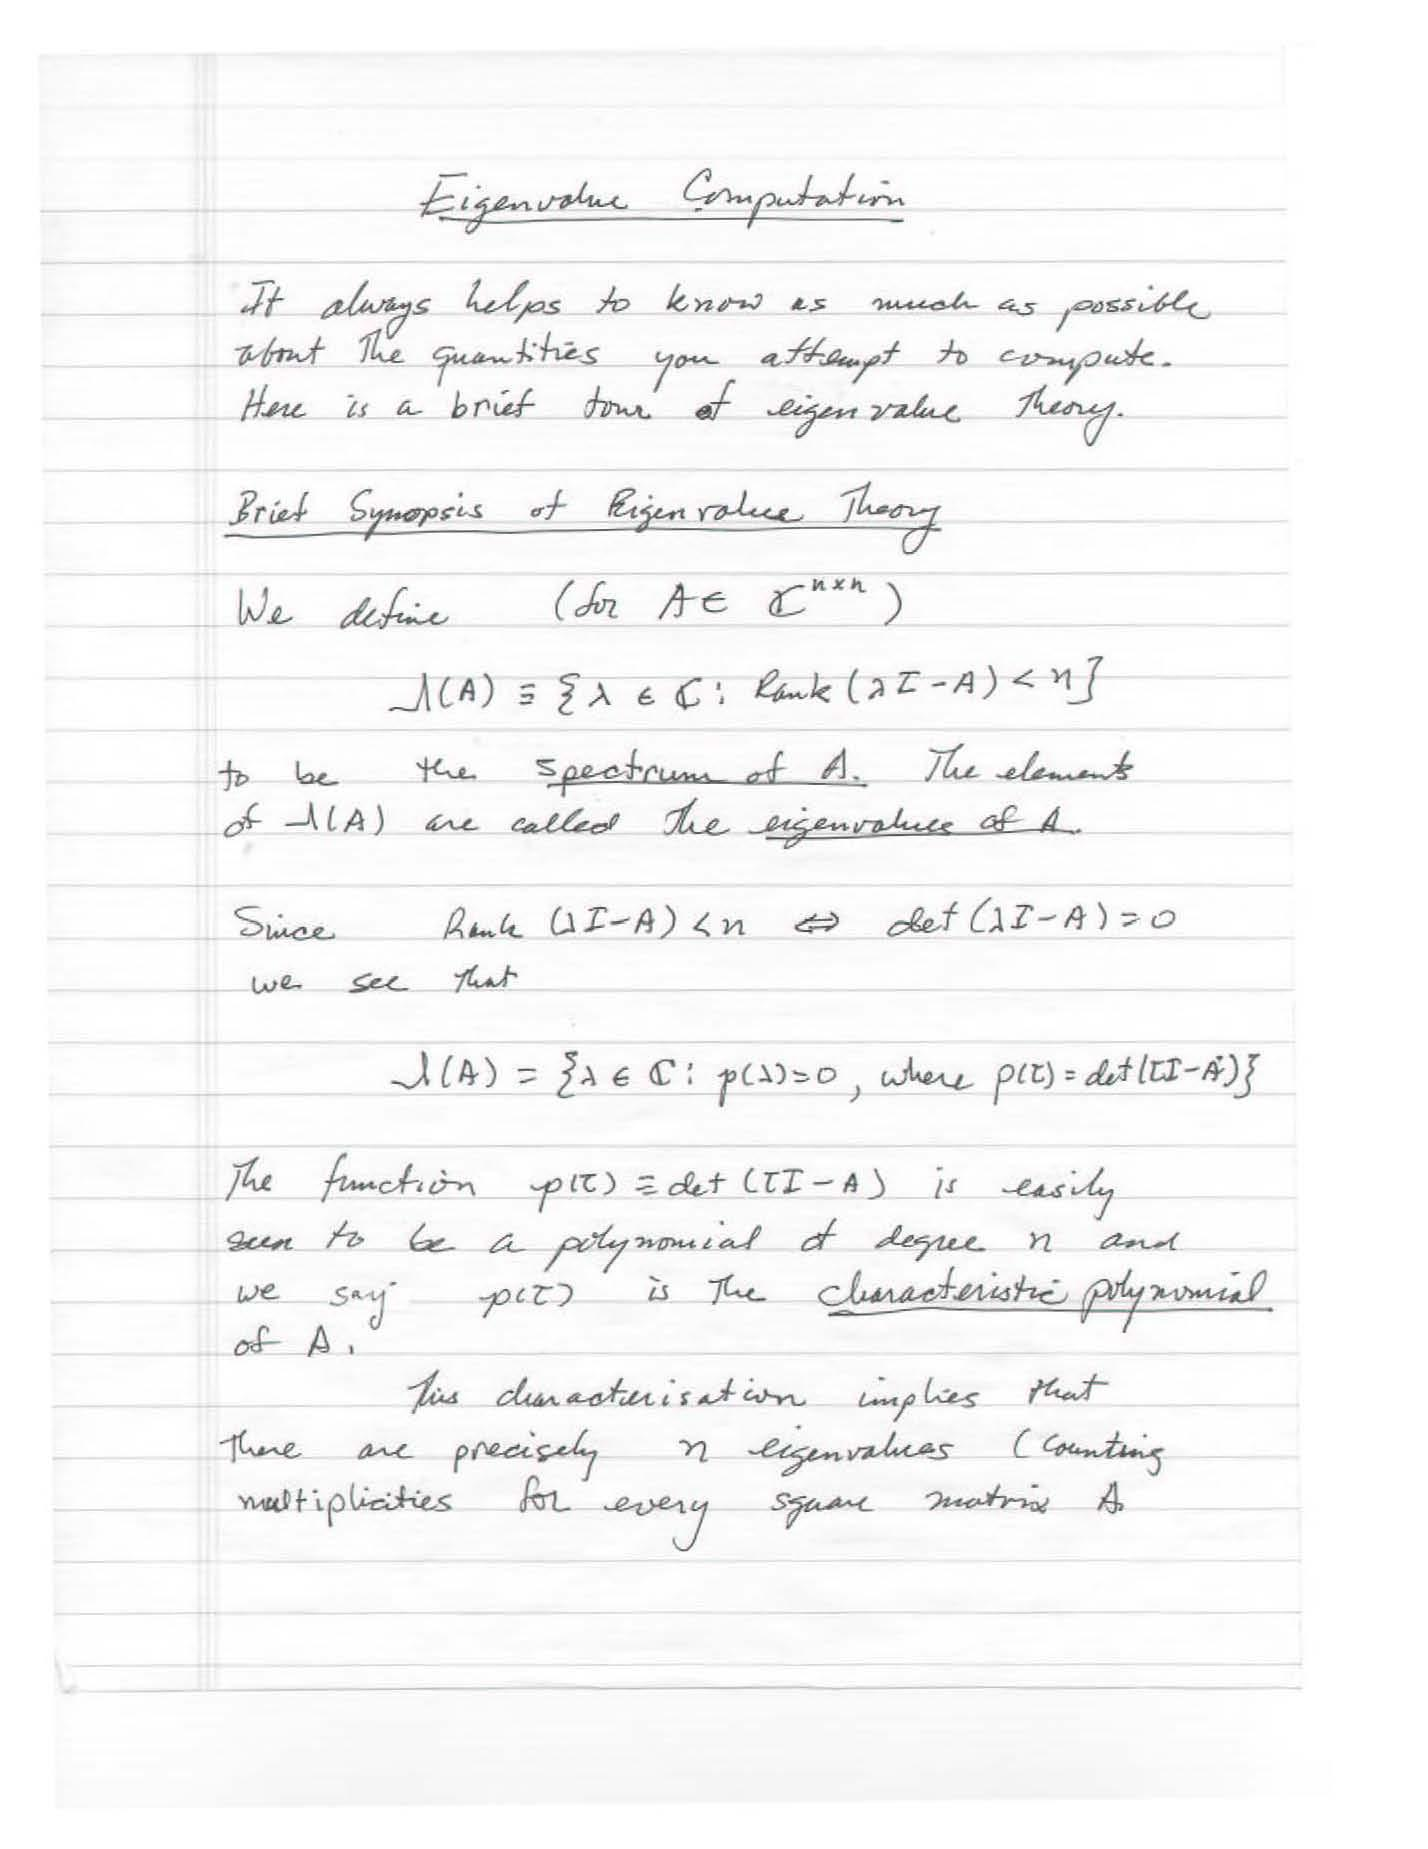 Eigenvalue Computation
It always helps to know as much as possible
about the quantities you attempt to compute.
Here is a brief tour of eigenvalue theory.
Brief Synopsis of Eigenvalue Theory
We define (for A ∈ ℂⁿˣⁿ)
Λ(A) ≡ {λ ∈ ℂ : Rank (λI - A) < n}
to be the spectrum of A. The elements
of Λ(A) are called the eigenvalues of A.
Since Rank (λI - A) < n ⇔ det (λI - A) = 0
we see that
Λ(A) = {λ ∈ ℂ : p(λ) = 0, where p(τ) = det(τI - A)}
The function p(τ) ≡ det (τI - A) is easily
seen to be a polynomial of degree n and
we say p(τ) is the characteristic polynomial
of A.
This characterisation implies that
there are precisely n eigenvalues (counting
multiplicities for every square matrix A.